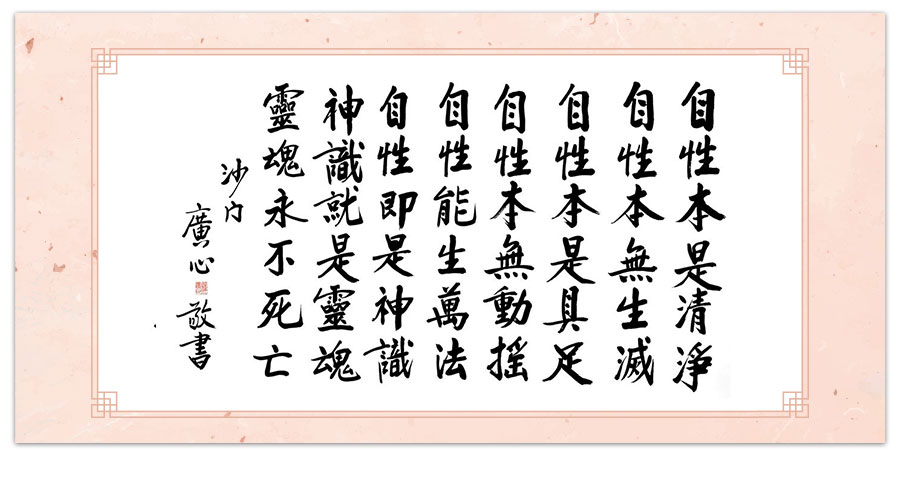 自性本是清淨
自性本無生滅
自性本是具足
自性本無動搖
自性能生萬法
自性即是神識
神識就是靈魂
靈魂永不死亡
沙门
廣心
敬書